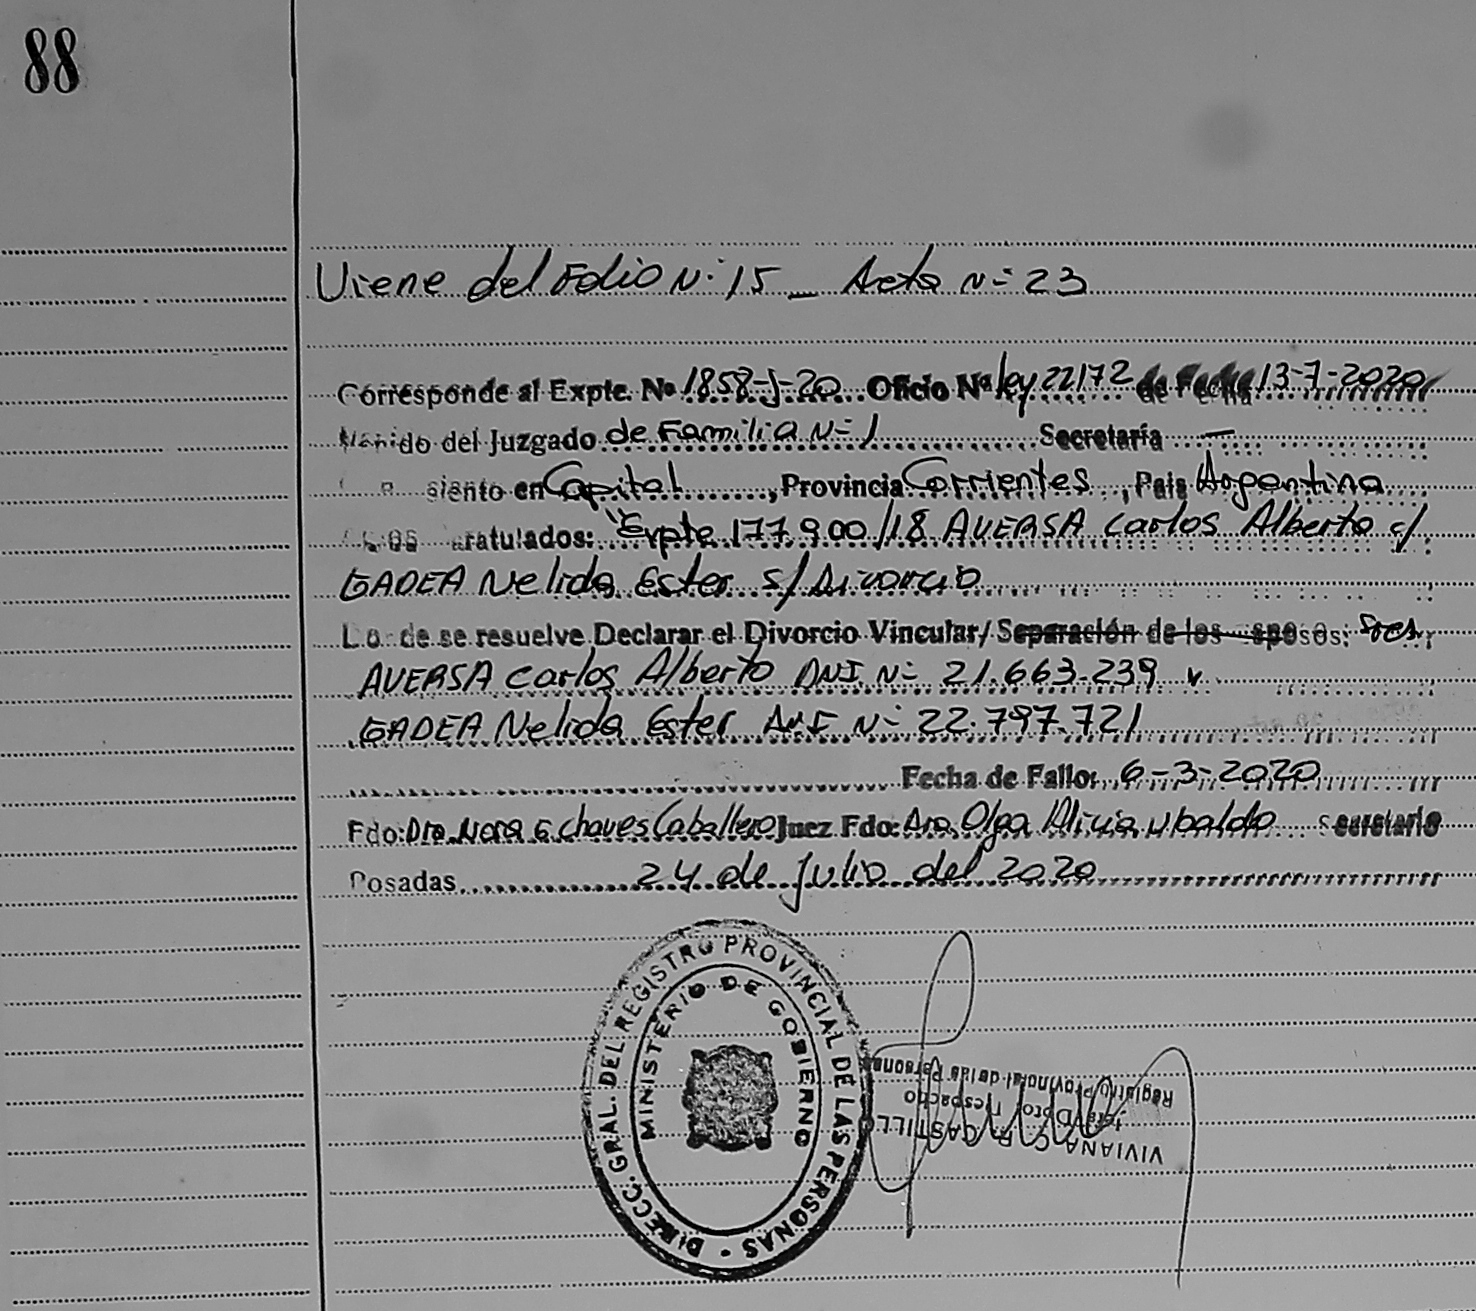 88
Viene del Folio N: 15 _ Acta N= 23
Corresponde al Expte. Nº 1858-J-20 Oficio Nº ley 22172 de Fecha 13-7-2020
del Juzgado de Familia N= 1 Secretaría —
siento en Capital, Provincia Corrientes, Pais Argentina
ratulados: "Expte 177.900/18 AVERSA Carlos Alberto c/
GADEA Nelida Ester s/ Divorcio
de se resuelve Declarar el Divorcio Vinculár/ Separación de los sposos: Sres
AVERSA Carlos Alberto DNI N= 21.663.239 y
GADEA Nelida Ester DNI N= 22.797.721
Fecha de Fallo: 6-3-2020
Fdo: Dra. Nora E. Chaves Caballero Juez Fdo: Dra. Olga Alicia Ubaldo Secretario
Posadas 24 de Julio del 2020
DIRECC. GRAL. DEL REGISTRO PROVINCIAL DE LAS PERSONAS
MINISTERIO DE GOBIERNO
VIVIANA C. R. CASTILLO
Jefa Dpto. Despacho
Registro Provincial de las Personas